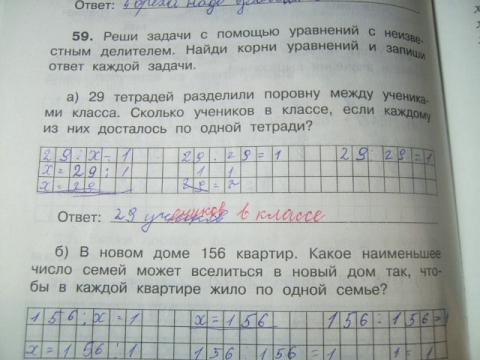 Ответ:
59. Реши задачи с помощью уравнений с неизве-
стным делителем. Найди корни уравнений и запиши
ответ каждой задачи.
а) 29 тетрадей разделили поровну между ученика-
ми класса. Сколько учеников в классе, если каждому
из них досталось по одной тетради?
29:х=1 29:29=1 29:29=1
х=29:1 1 1
х=29
Ответ: 29 учеников в классе
б) В новом доме 156 квартир. Какое наименьшее
число семей может вселиться в новый дом так, что-
бы в каждой квартире жило по одной семье?
156:х=1 х=156 156:156=1
х=156:1 156:156=1 1=1